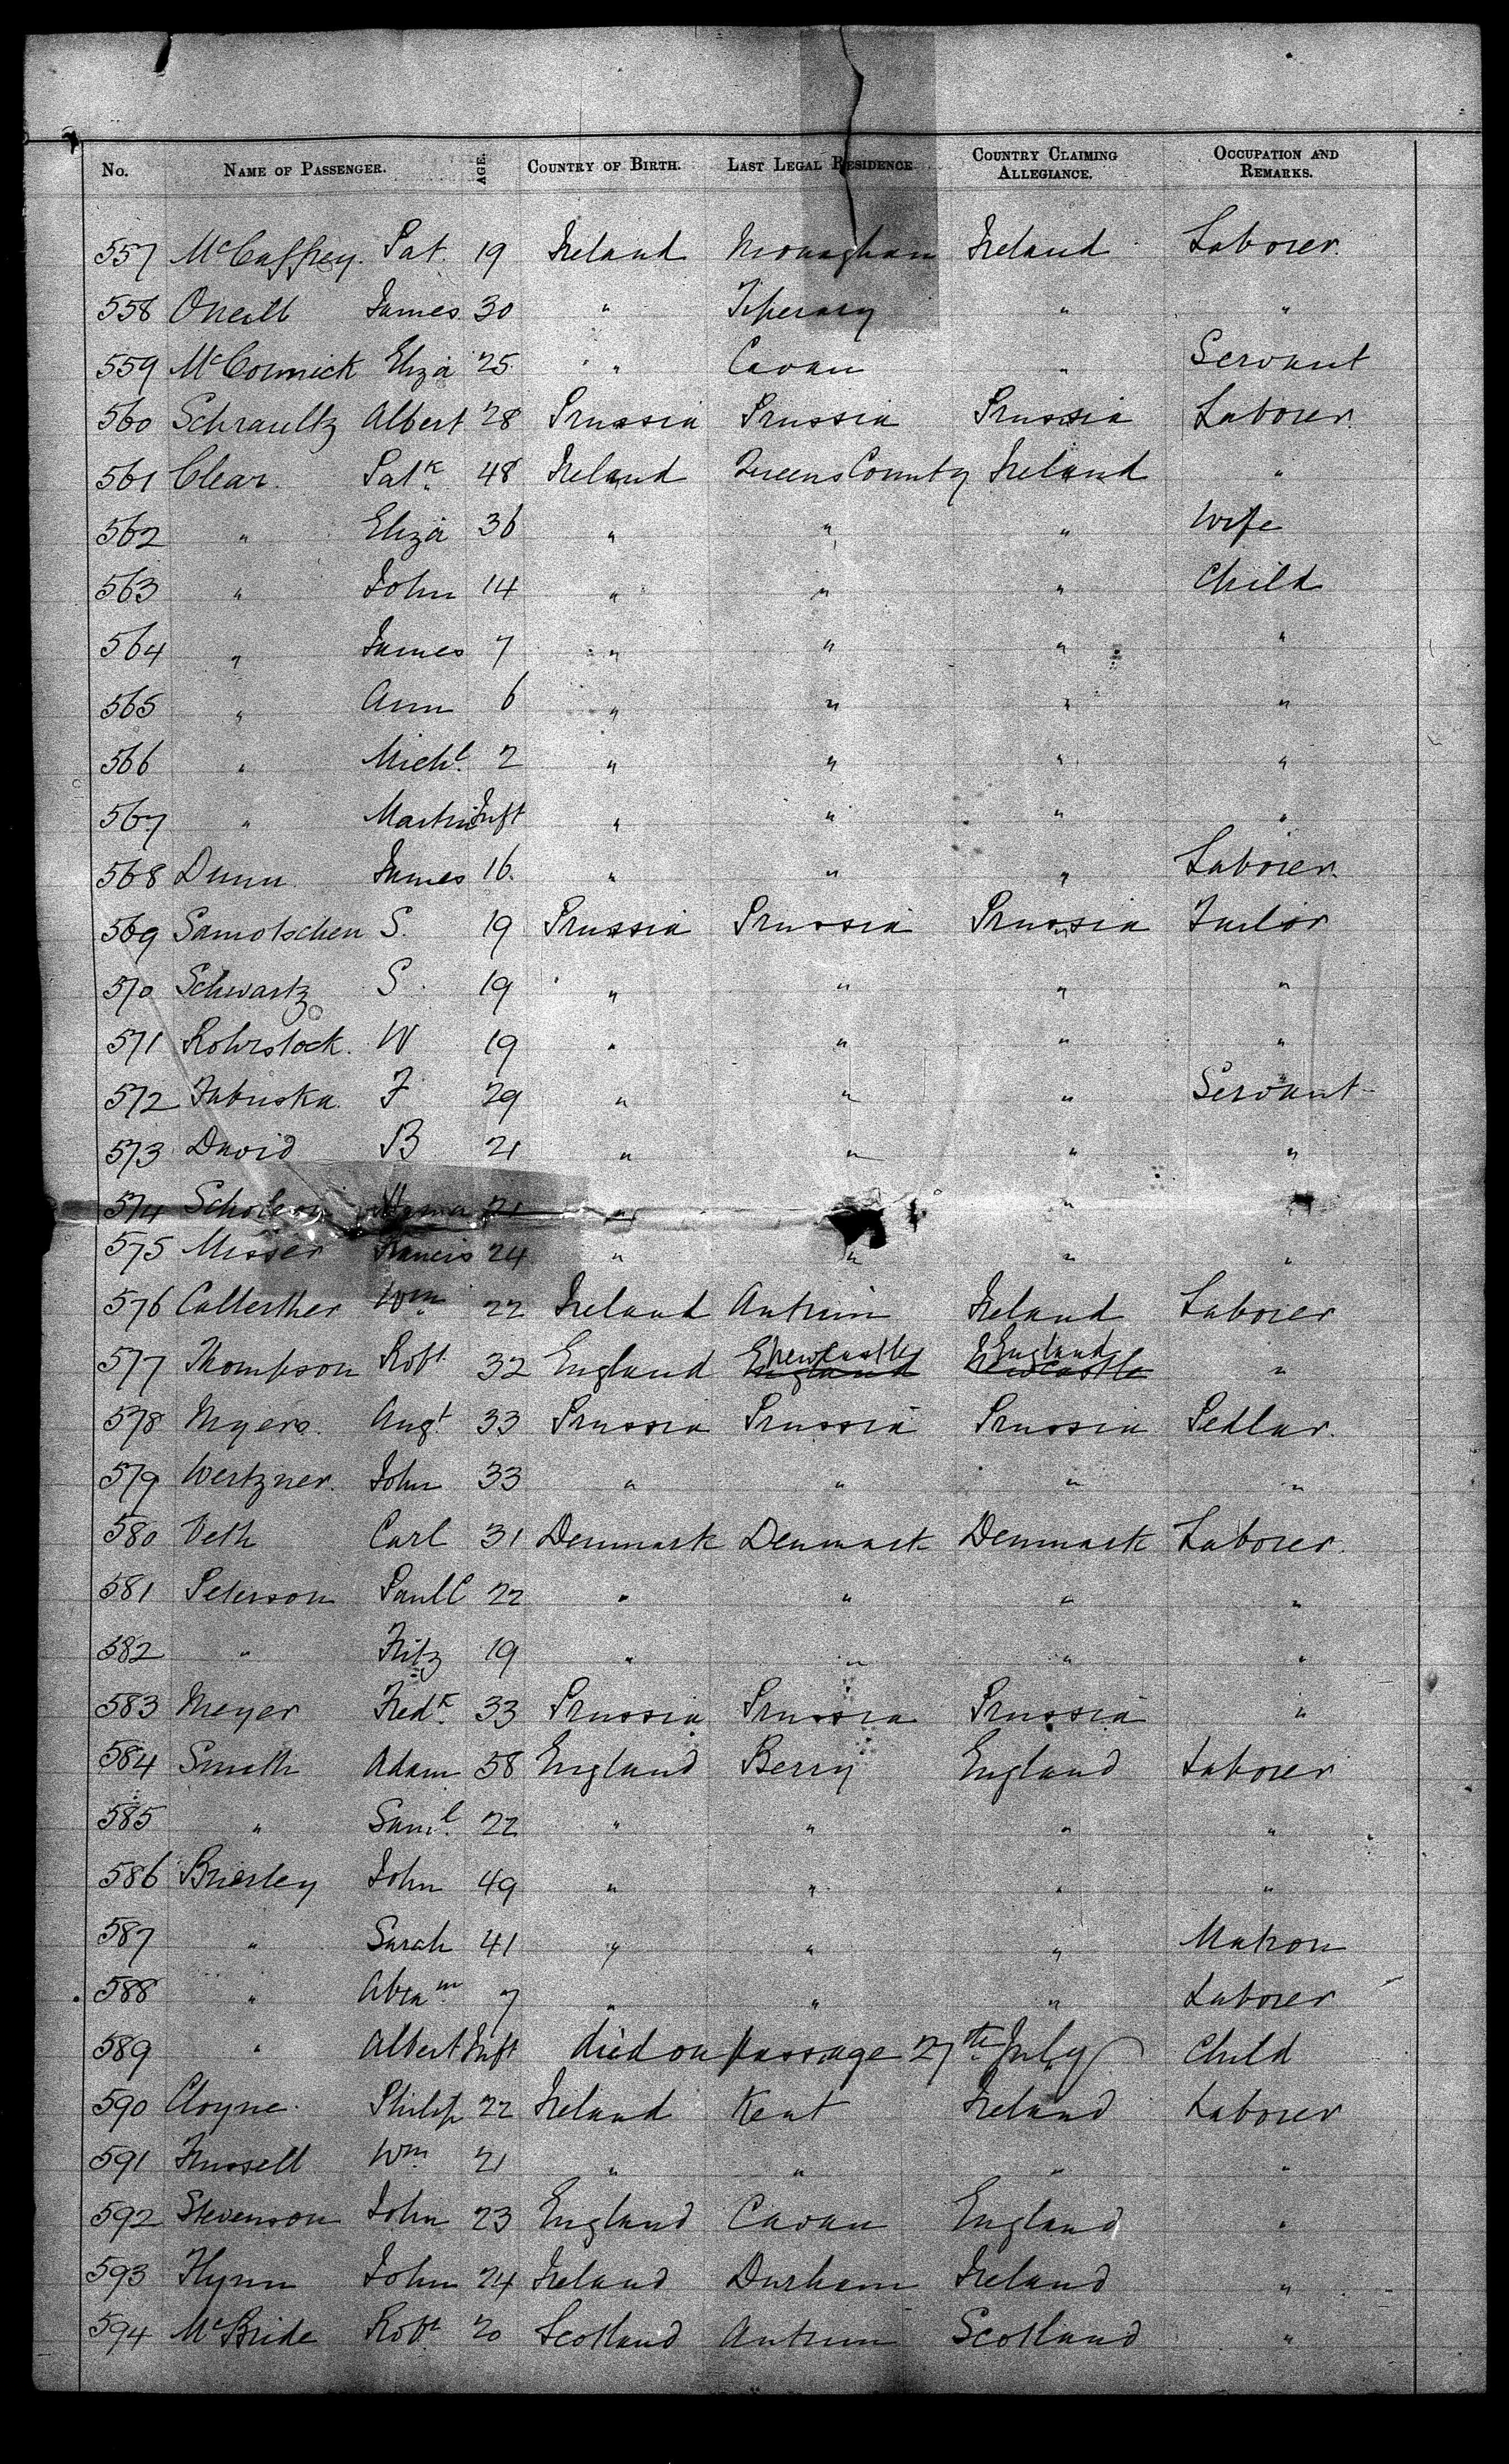 No. NAME OF PASSENGER. AGE. COUNTRY OF BIRTH. LAST LEGAL RESIDENCE COUNTRY CLAIMING ALLEGIANCE. OCCUPATION AND REMARKS.
557 McCaffrey. Pat. 19 Ireland Monaghan Ireland Laborer.
558 Oneill James 30 " Tiperary " "
559 McCormick Eliza 25. " Cavan " Servant
560 Schraultz Albert 28 Prussia Prussia Prussia Laborer.
561 Clear. Patk 48 Ireland Queens County Ireland "
562 " Eliza 36 " " " Wife
563 " John 14 " " " Child
564 " James 7 " " " "
565 " Ann 6 " " " "
566 " Michl. 2 " " " "
567 " Martin Inft " " " "
568 Dunn James 16. " " " Laborer.
569 Samotschen S. 19 Prussia Prussia Prussia Tailor
570 Schwartz S. 19 " " " "
571 Rohrstock. W 19 " " " "
572 Tabuska F 29 " " " Servant
573 David B 21 " " " "
574 21 " " "
575 Messer Francis 24 " " " "
576 Callesther Wm 22 Ireland Antrim Ireland Laborer
577 Thompson Robt. 32 England England Newcastle Newcastle England "
578 Myers. Augt. 33 Prussia Prussia Prussia Pedlar.
579 Wertzner. John 33 " " " "
580 Veth Carl 31 Denmark Denmark Denmark Laborer.
581 Peterson Paul C 22 " " " "
582 " Fritz 19 " " " "
583 Meyer Fredk. 33 Prussia Prussia Prussia "
584 Smith Adam 58 England Berry England Laborer
585 " Saml. 22 " " " "
586 Brierley John 49 " " " "
587 " Sarah 41 " " " Matron
588 " Abram 7 " " " Laborer
589 " Albert Inft died on passage 27th July Child
590 Cloyne. Philip 22 Ireland Kent Ireland Laborer
591 Fussell Wm 21 " " " "
592 Stevenson John 23 England Cavan England "
593 Flynn John 24 Ireland Durham Ireland "
594 McBride Robt. 20 Scotland Antrim Scotland "